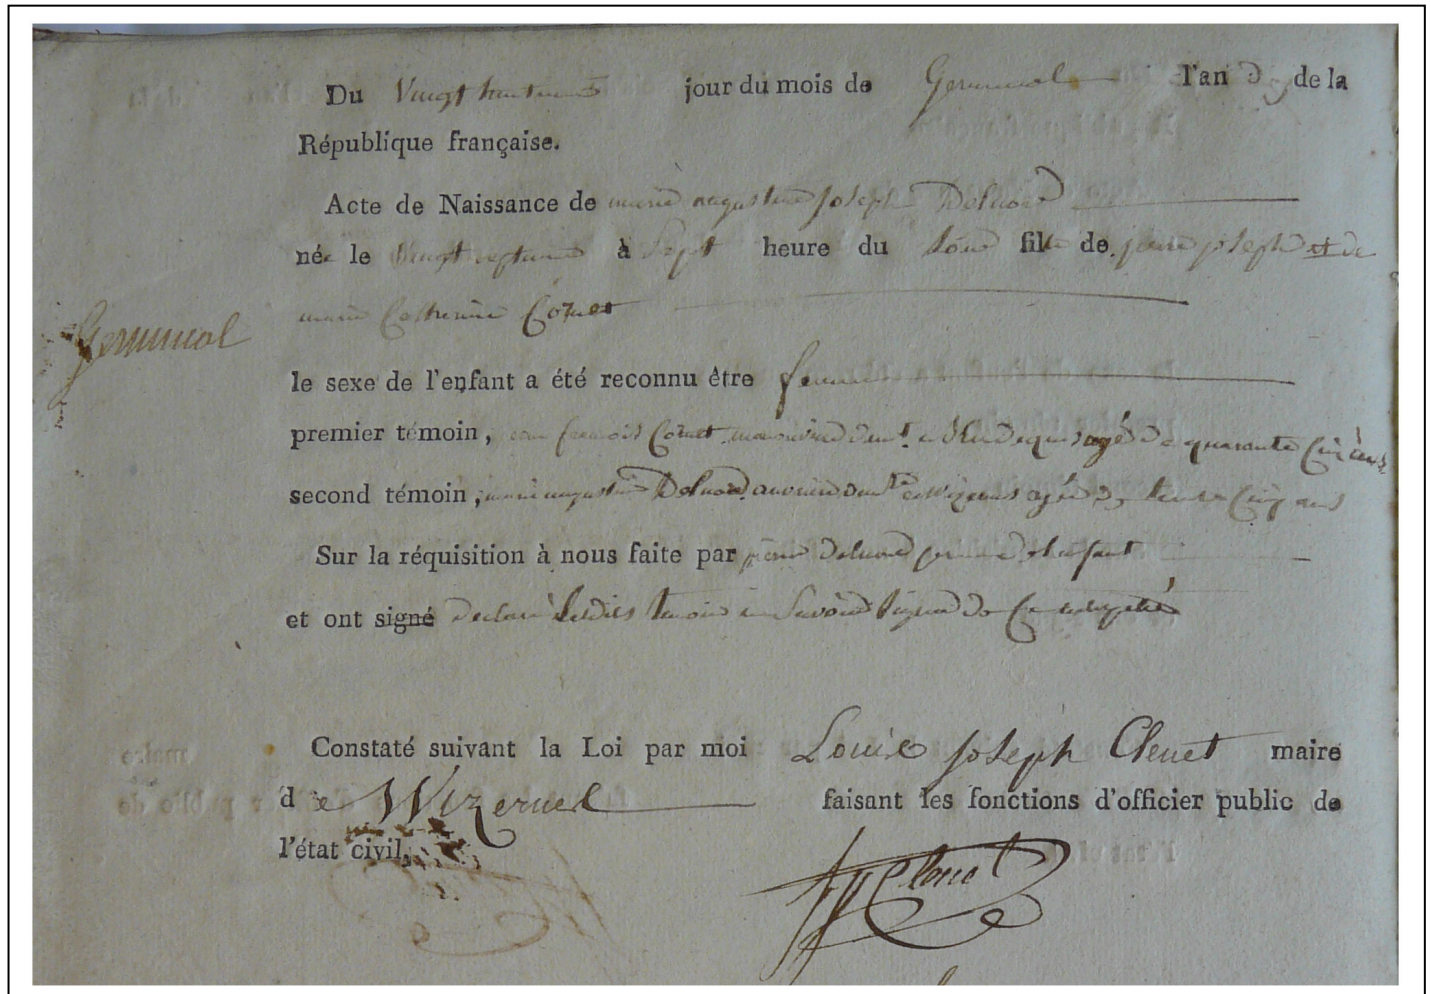 Du Vingt huitieme jour du mois de Germinal l'an dix de la
République française.
Acte de Naissance de marie augustine joseph Delnord
née le Vingt septieme à Sept heure du Soir fille de pierre joseph et de
marie Catherine Cornet
Germinal
le sexe de l'enfant a été reconnu être femme
premier témoin, francois Cornet agé de quarante Cinq ans
second témoin, marie augustine Delnord agée de trente Cinq ans
Sur la réquisition à nous faite par pierre Delnord pere de l'enfant
et ont signé declaré lesdits temoins Savoir Signer de Ce
Constaté suivant la Loi par moi Louis Joseph Clenet maire
de Wizernes faisant les fonctions d'officier public de
l'état civil.